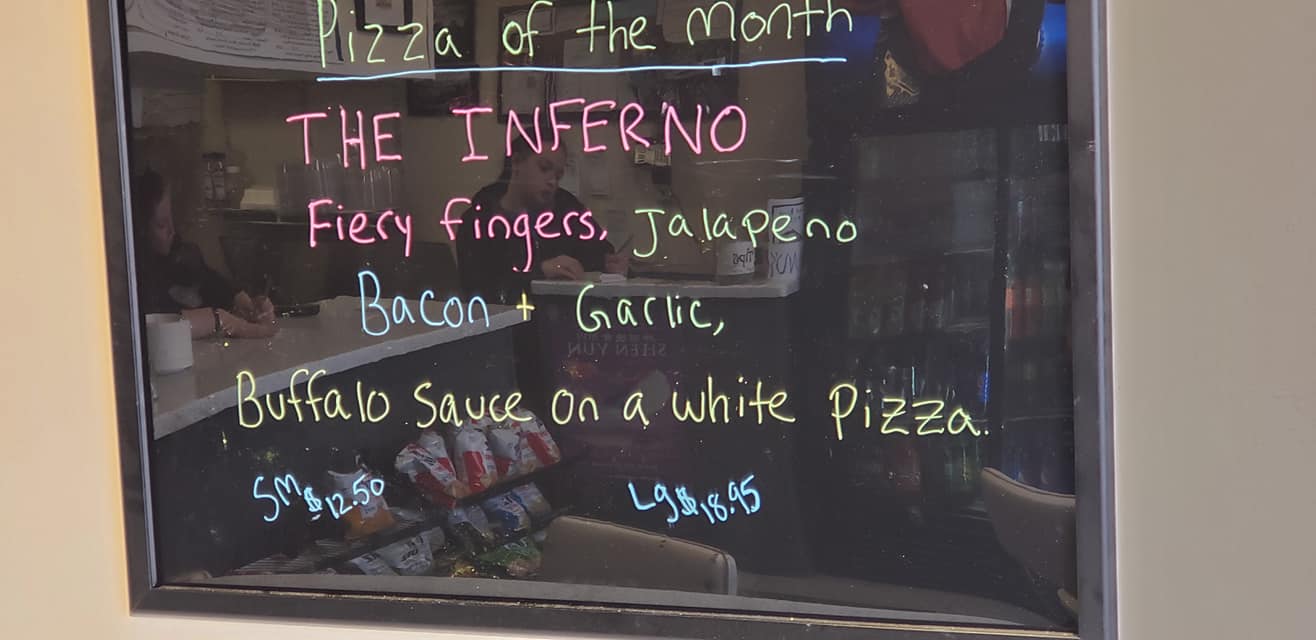 Pizza of the Month
THE INFERNO
Fiery fingers, Jalapeno
Bacon + Garlic,
Buffalo Sauce on a white Pizza.
SM $12.50
Lg $18.95
SHEN YUN